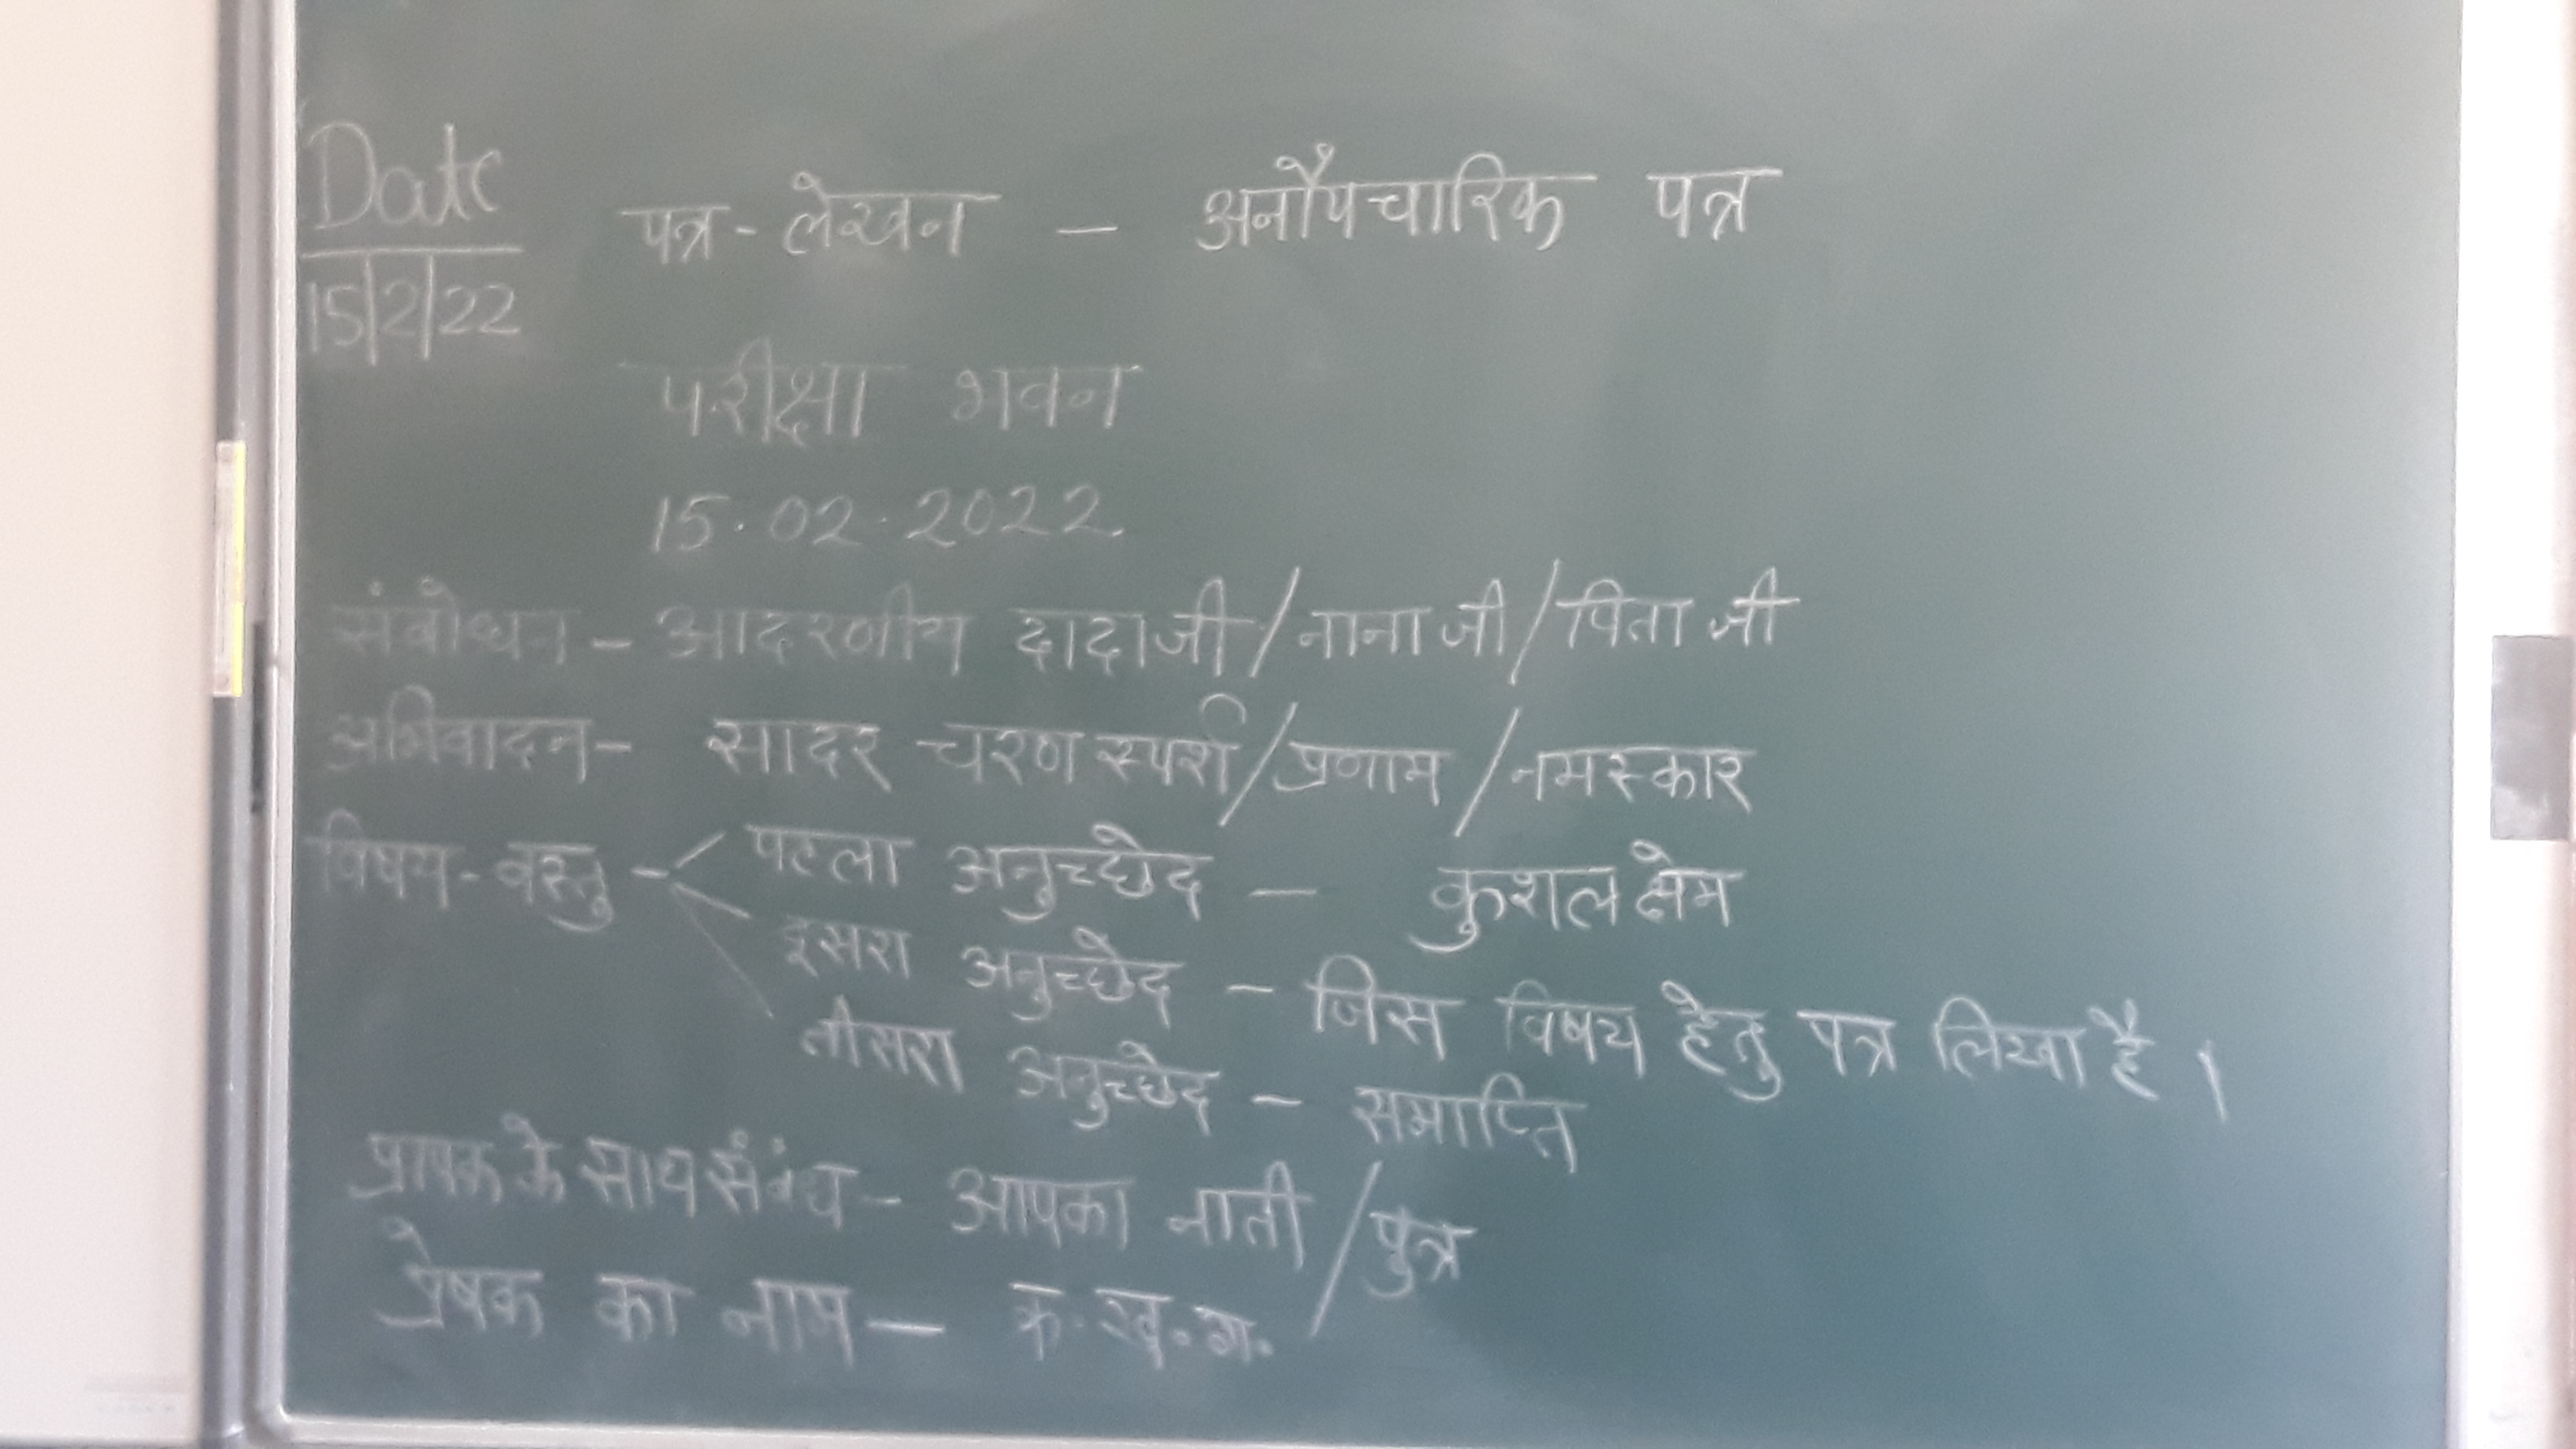 Date
15/2/22
पत्र-लेखन – अनौपचारिक पत्र
परीक्षा भवन
15.02.2022
संबोधन – आदरणीय दादाजी/नानाजी/पिताजी
अभिवादन – सादर चरण स्पर्श/प्रणाम/नमस्कार
विषय-वस्तु – पहला अनुच्छेद – कुशलक्षेम
दूसरा अनुच्छेद – जिस विषय हेतु पत्र लिखा है।
तीसरा अनुच्छेद – समाप्ति
प्रापक के साथ संबंध – आपका नाती/पुत्र
प्रेषक का नाम – क.ख.ग.